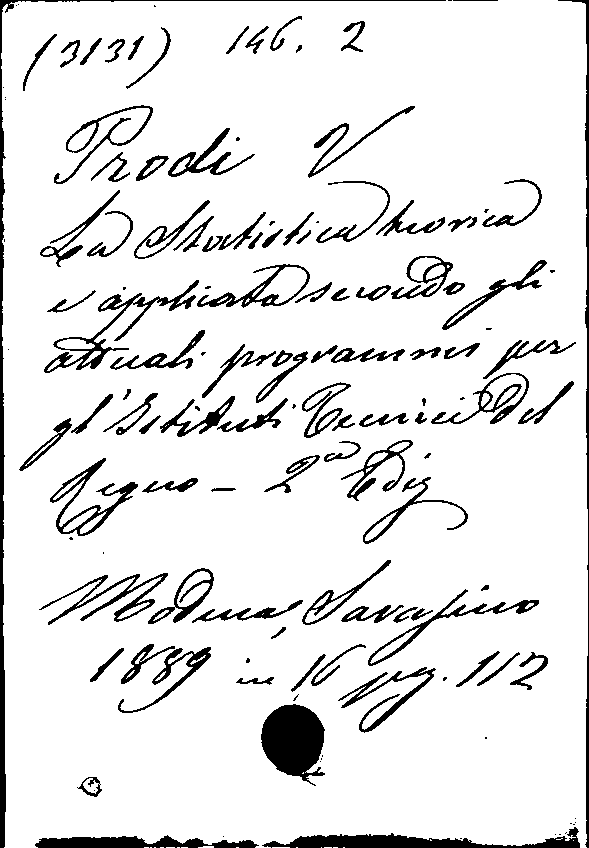 (3131) 146. 2
Prodi V
La Statistica teorica
e applicata secondo gli
attuali programmi per
gl'Istituti Tecnici del
Regno – 2a Ediz
Modena, Sarasino
1889 in 16 pag. 112